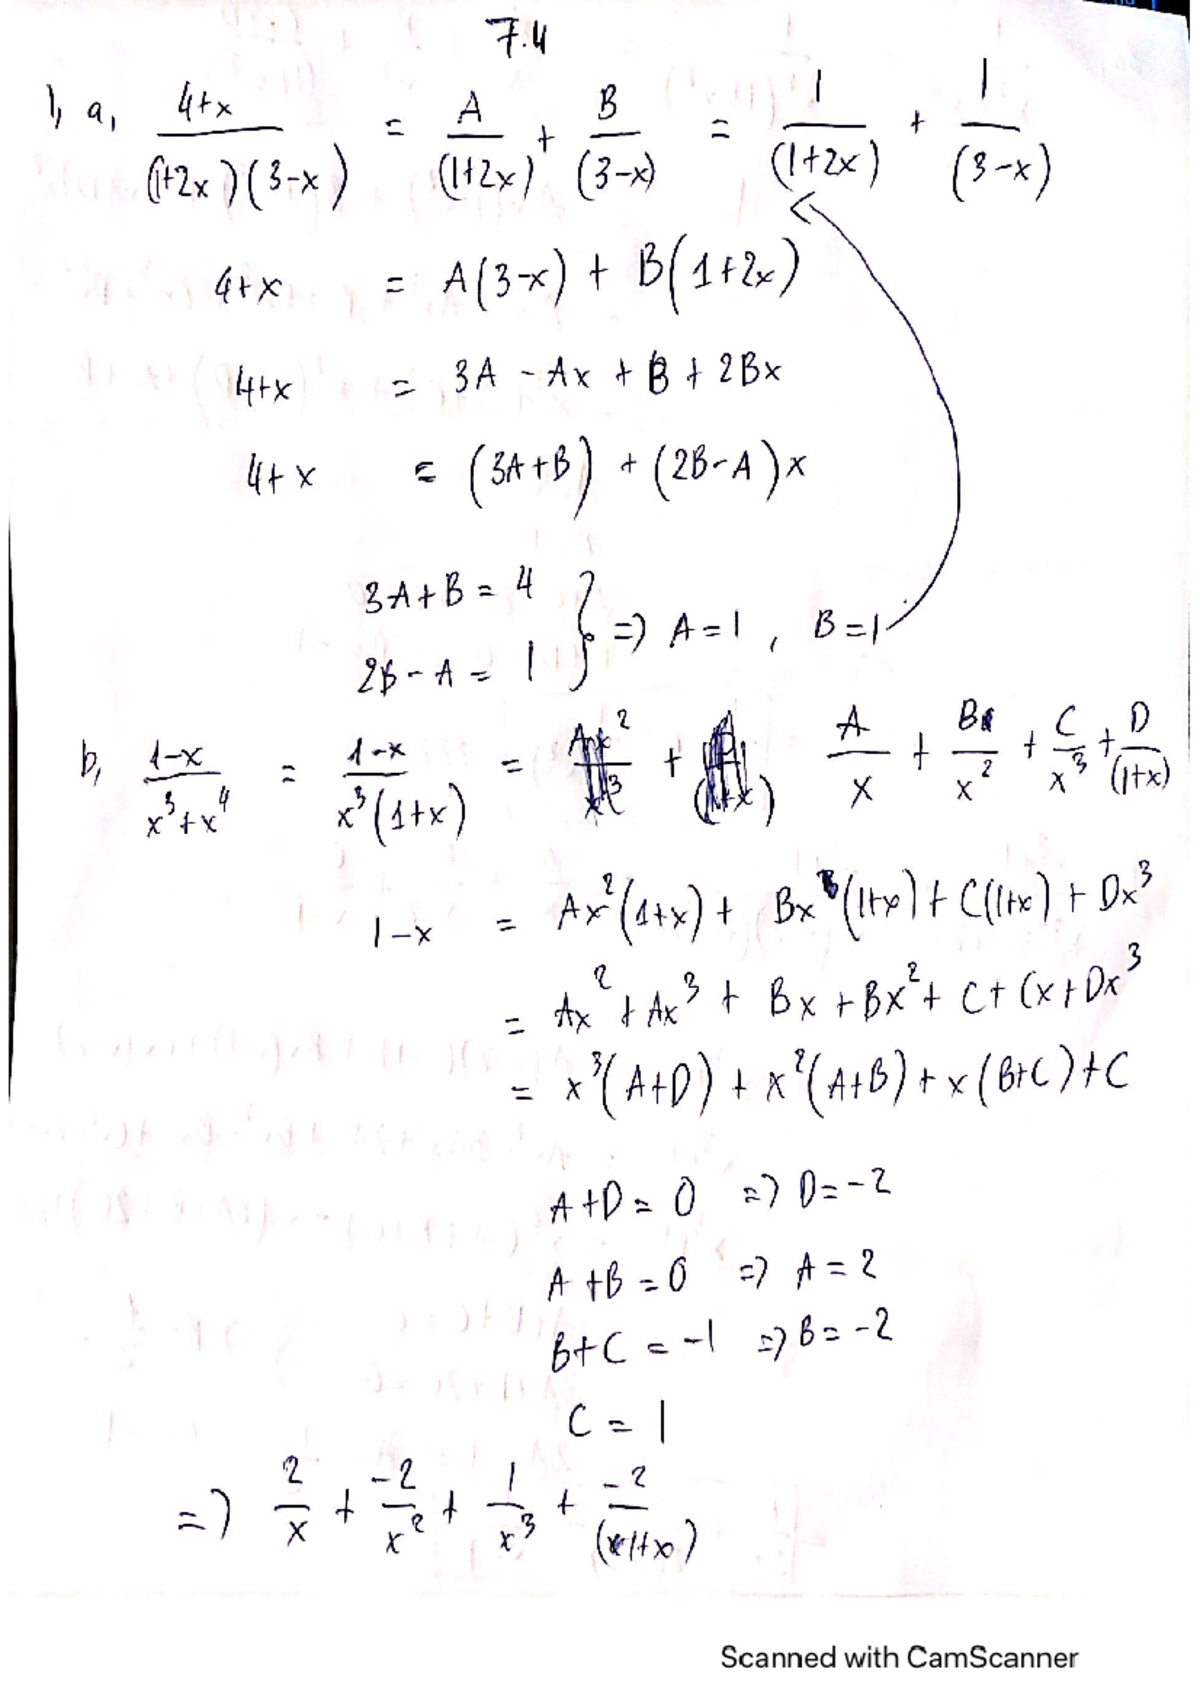 7.4
1, a, (4+x)/((1+2x)(3-x)) = A/(1+2x) + B/(3-x) = 1/(1+2x) + 1/(3-x)
4+x = A(3-x) + B(1+2x)
4+x = 3A - Ax + B + 2Bx
4+x = (3A+B) + (2B-A)x
3A+B = 4
2B-A = 1 } => A=1, B=1
b, (1-x)/(x³+x⁴) = (1-x)/(x³(1+x)) = A/x + B/x² + C/x³ + D/(1+x)
1-x = Ax²(1+x) + Bx(1+x) + C(1+x) + Dx³
= Ax² + Ax³ + Bx + Bx² + C + Cx + Dx³
= x³(A+D) + x²(A+B) + x(B+C) + C
A+D = 0 => D=-2
A+B = 0 => A=2
B+C = -1 => B=-2
C = 1
=> 2/x + -2/x² + 1/x³ + -2/(1+x)
Scanned with CamScanner